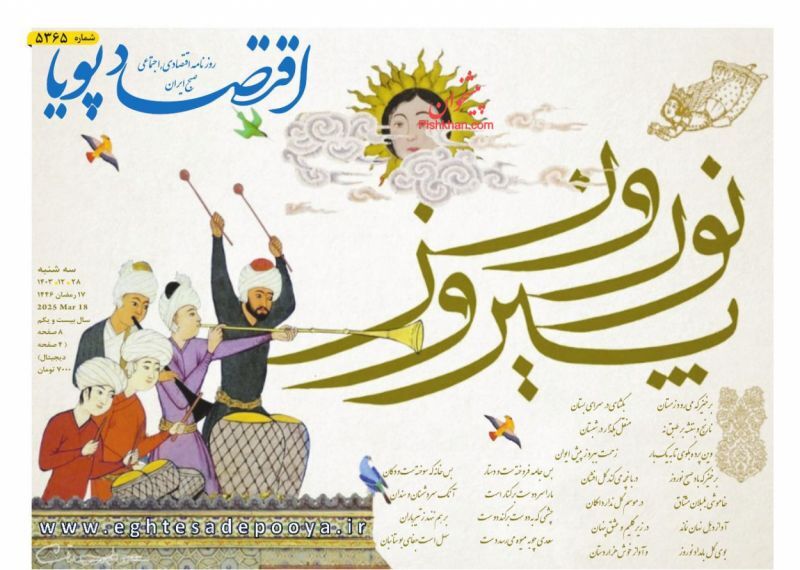 شماره ۵۳۶۵
اقتصاد پویا
روزنامه اقتصادی، اجتماعی
صبح ایران
پیشخوان
Pishkhan.com
نوروز
پیروز
سه شنبه
۲۸ ۱۲ ۱۴۰۳
۱۷ رمضان ۱۴۴۶
2025 Mar 18
سال بیست و یکم
۸ صفحه
(۴ صفحه
دیجیتال)
۷۰۰۰ تومان
برخیز که می رود زمستان بگشای در سرای بستان
نارنج و بنفشه بر طبق نه منقل بگذار در شبستان
وین پرده بگوی تا به یک بار زحمت ببرد ز پیش ایوان
برخیز که باد صبح نوروز در باغچه می کند گل افشان
خاموشی بلبلان مشتاق در موسم گل ندارد امکان
آواز دهل نهان نماند در زیر گلیم و عشق پنهان
بوی گل بامداد نوروز و آواز خوش هزاردستان
بس جامه فروختست و دستار بس خانه که سوختست و دکان
ما را سر دوست بر کنار است آنک سر دشمنان و سندان
چشمی که به دوست برکند دوست بر هم ننهد ز تیرباران
سعدی چو به میوه می رسد دست سهل است جفای بوستانبان
www.eghtesadepooya.ir